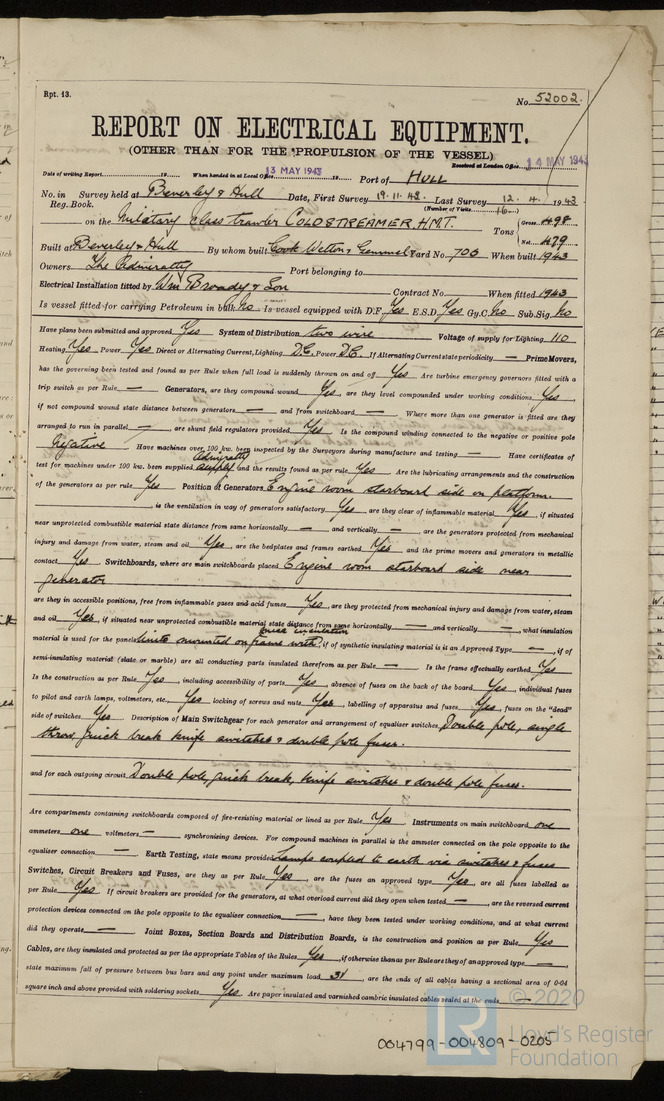 Rpt. 13.
No. 52002.
REPORT ON ELECTRICAL EQUIPMENT.
(OTHER THAN FOR THE PROPULSION OF THE VESSEL)
Received at London Office 14 MAY 1943
Date of writing Report 19 When handed in at Local Office 13 MAY 1943 19 Port of HULL
No. in Survey held at Beverley & Hull Date, First Survey 19.11.42. Last Survey 12. 4. 1943
Reg. Book. (Number of Visits 16)
on the Military class trawler COLDSTREAMER, H.M.T. Tons { Gross 498 Net 479
Built at Beverley & Hull By whom built Cook Welton & Gemmel Yard No. 703 When built 1943
Owners The Admiralty Port belonging to
Electrical Installation fitted by Wm Broady & Son Contract No. When fitted 1943
Is vessel fitted for carrying Petroleum in bulk No Is vessel equipped with D.F. Yes E.S.D. Yes Gy.C. No Sub.Sig. No
Have plans been submitted and approved Yes System of Distribution two wire Voltage of supply for Lighting 110
Heating Yes Power Yes Direct or Alternating Current, Lighting DC Power DC If Alternating Current state periodicity — Prime Movers,
has the governing been tested and found as per Rule when full load is suddenly thrown on and off Yes Are turbine emergency governors fitted with a
trip switch as per Rule — Generators, are they compound wound Yes, are they level compounded under working conditions Yes,
if not compound wound state distance between generators — and from switchboard — Where more than one generator is fitted are they
arranged to run in parallel —, are shunt field regulators provided Yes Is the compound winding connected to the negative or positive pole
Negative Have machines over 100 kw. been inspected by the Surveyors during manufacture and testing — Have certificates of
test for machines under 100 kw. been supplied Admiralty supply and the results found as per rule Yes Are the lubricating arrangements and the construction
of the generators as per rule Yes Position of Generators Engine room starboard side on platform.
, is the ventilation in way of generators satisfactory Yes are they clear of inflammable material Yes, if situated
near unprotected combustible material state distance from same horizontally — and vertically —, are the generators protected from mechanical
injury and damage from water, steam and oil Yes, are the bedplates and frames earthed Yes and the prime movers and generators in metallic
contact Yes Switchboards, where are main switchboards placed Engine room starboard side near
generator
are they in accessible positions, free from inflammable gases and acid fumes Yes, are they protected from mechanical injury and damage from water, steam
and oil Yes, if situated near unprotected combustible material state distance from same horizontally — and vertically —, what insulation
material is used for the panels Units mounted on frame with mica insulation, if of synthetic insulating material is it an Approved Type —, if of
semi-insulating material (slate or marble) are all conducting parts insulated therefrom as per Rule — Is the frame effectually earthed Yes
Is the construction as per Rule Yes, including accessibility of parts Yes, absence of fuses on the back of the board Yes, individual fuses
to pilot and earth lamps, voltmeters, etc. Yes locking of screws and nuts Yes, labelling of apparatus and fuses Yes, fuses on the "dead"
side of switches Yes Description of Main Switchgear for each generator and arrangement of equaliser switches Double pole, single
throw, quick break knife switches & double pole fuses.
and for each outgoing circuit Double pole, quick break, knife switches & double pole fuses.
Are compartments containing switchboards composed of fire-resisting material or lined as per Rule Yes Instruments on main switchboard one
ammeters one voltmeters — synchronising devices. For compound machines in parallel is the ammeter connected on the pole opposite to the
equaliser connection — Earth Testing, state means provided Lamps coupled to earth via switches & fuses
Switches, Circuit Breakers and Fuses, are they as per Rule Yes, are the fuses an approved type Yes, are all fuses labelled as
per Rule Yes If circuit breakers are provided for the generators, at what overload current did they open when tested —, are the reversed current
protection devices connected on the pole opposite to the equaliser connection —, have they been tested under working conditions, and at what current
did they operate — Joint Boxes, Section Boards and Distribution Boards, is the construction and position as per Rule Yes
Cables, are they insulated and protected as per the appropriate Tables of the Rules Yes, if otherwise than as per Rule are they of an approved type —,
state maximum fall of pressure between bus bars and any point under maximum load 3V, are the ends of all cables having a sectional area of 0·04
square inch and above provided with soldering sockets Yes Are paper insulated and varnished cambric insulated cables sealed at the ends —
© 2020
LR
Lloyd's Register
Foundation
004799-004809-0205